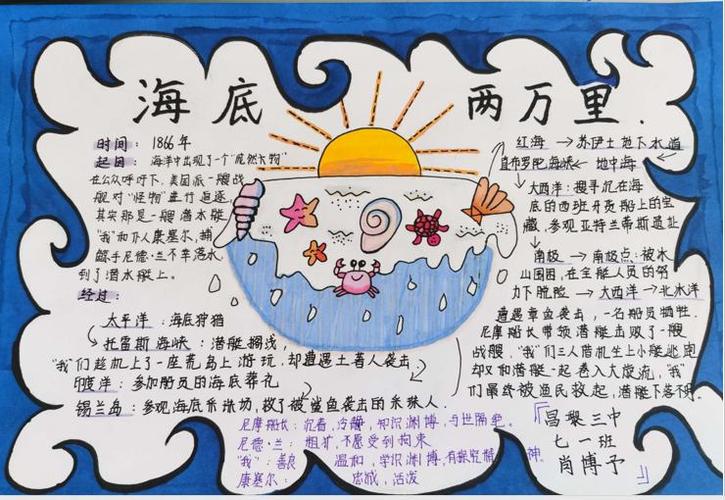 海底 两万里.
时间：1866年
起因：海洋中出现了一个"庞然大物"
在公众呼吁下，美国派一艘战
舰对"怪物"进行追逐，
其实那是一艘潜水艇
"我"和仆人康塞尔，捕
鲸手尼德·兰不幸落水
到了潜水艇上。
经过：
太平洋：海底狩猎
托雷斯海峡：潜艇搁浅，
"我"们趁机上了一座荒岛上游玩，却遭遇土著人袭击
印度洋：参加船员的海底葬礼
锡兰岛：参观海底采珠场，救了被鲨鱼袭击的采珠人.
红海→苏伊士地下水道
直布罗陀海峡←地中海
大西洋：搜寻沉在海
底的西班牙员船上的宝
藏，参观亚特兰蒂斯遗址
南极→南极点：被冰
山围困，在全艇人员的努
力下脱险→大西洋→北冰洋
遭遇章鱼袭击，一名船员牺牲.
尼摩船长带领潜艇击毁了一艘
战艘."我"们三人借机坐上小艇逃跑
却又和潜艇一起卷入大旋流，"我"
们最终被渔民救起，潜艇下落不明.
尼摩船长：沉着，冷静，知识渊博，与世隔绝。
尼德·兰：粗犷，不愿受到拘束
"我"：善良 温和，学识渊博，有探究精神.
康塞尔：忠诚，活泼
『昌黎三中
七一班
肖博予』